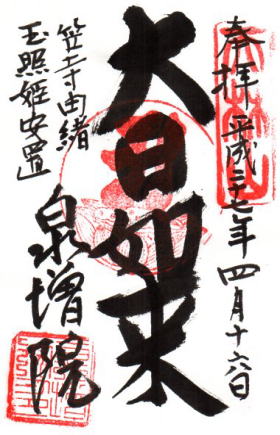 奉拝 平成二十七年 四月十六日
大日如来
笠寺由緒
玉照姫安置
泉増院